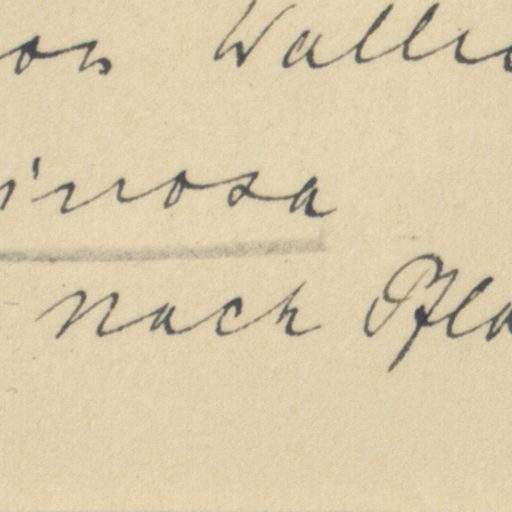 von Walli
inosa
nach Pfla